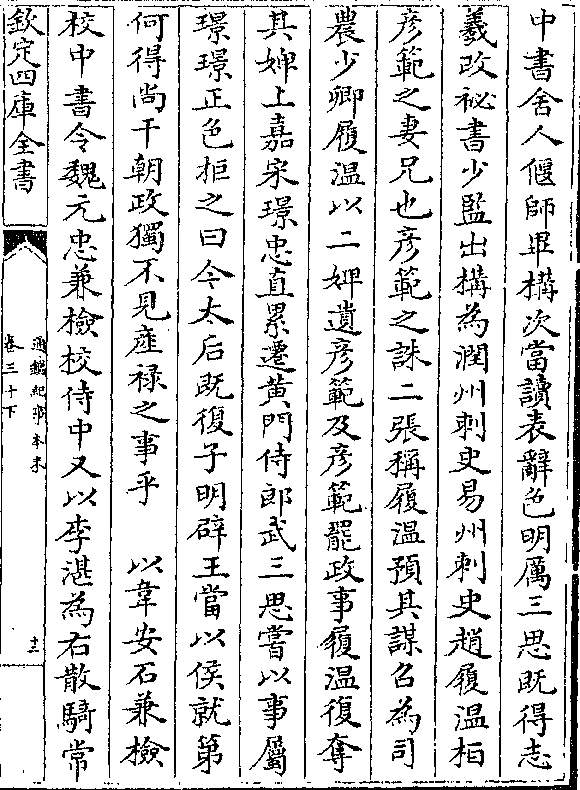 中書舍人偃師畢構次當讀表辭色明厲三思既得志
羲改祕書少監出構為潤州刺史易州刺史趙履溫桓
彦範之妻兄也彦範之誅二張稱履溫預其謀召為司
農少卿履溫以二婢遺彦範及彦範罷政事履溫復奪
其婢上嘉宋璟忠直累遷黄門侍郎武三思嘗以事屬
璟璟正色拒之曰今太后既復子明辟王當以侯就第
何得尚干朝政獨不見産禄之事乎　以韋安石兼檢
校中書令魏元忠兼檢校侍中又以李湛為右散騎常
欽定四庫全書
通鑑紀事本末
卷三十下